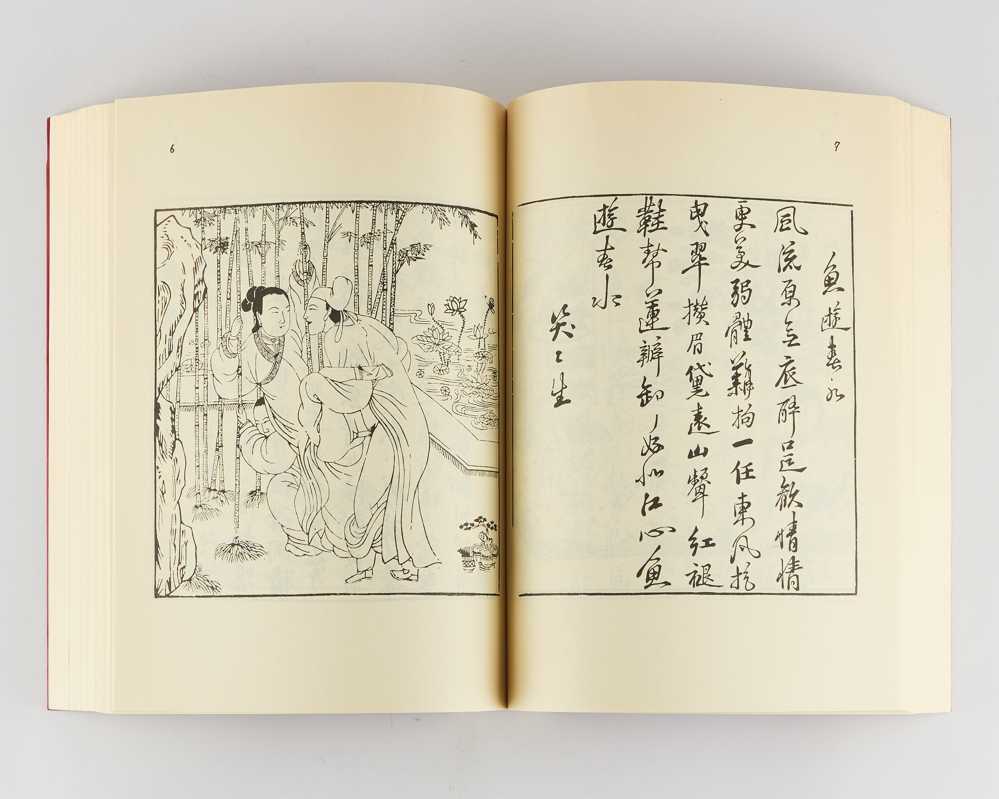 6
7
魚遊春水
風流原無底醉逞歡情情
更美弱體難拘一任東風搖
曳翠攢眉黛遠山顰紅褪
鞋幫蓮瓣卸好似江心魚
遊春水
笑〻生